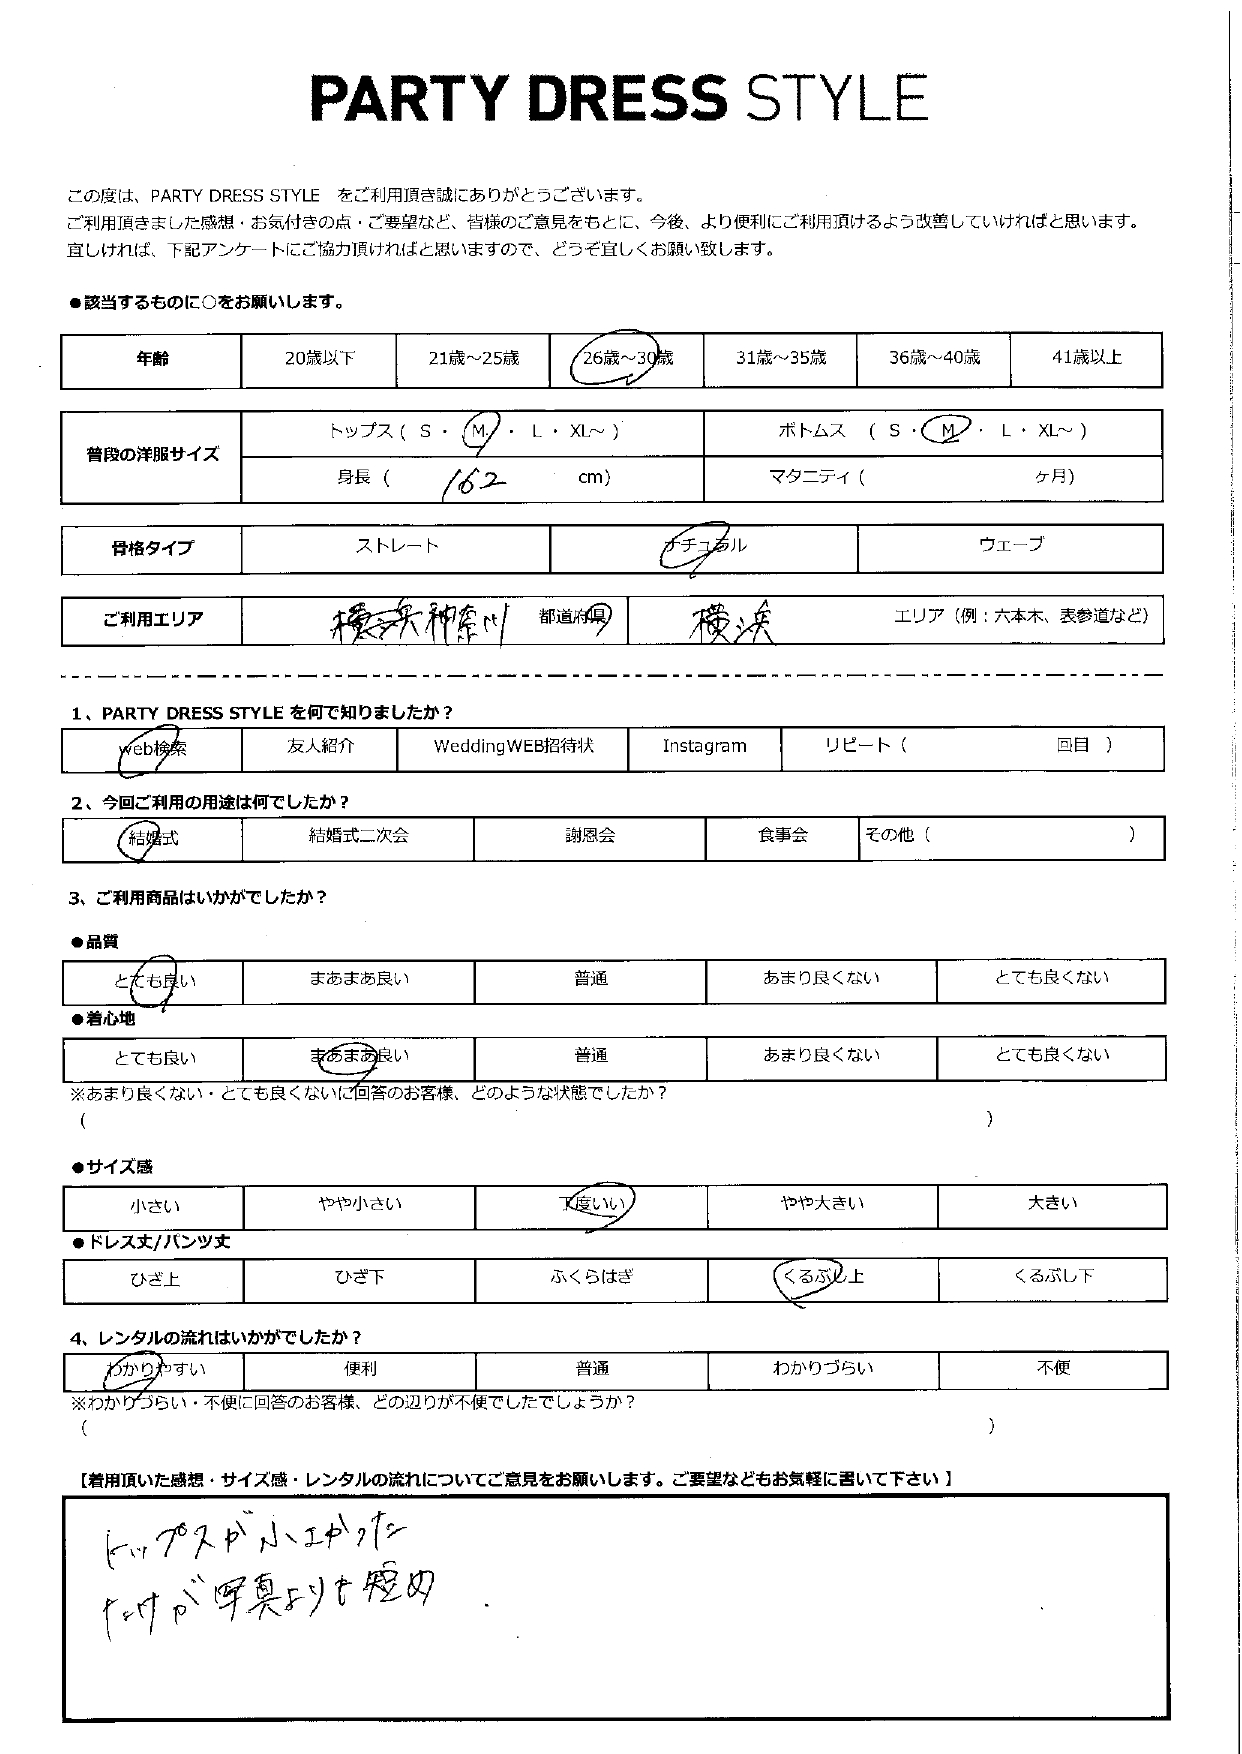 PARTY DRESS STYLE
この度は、PARTY DRESS STYLE をご利用頂き誠にありがとうございます。
ご利用頂きました感想・お気付きの点・ご要望など、皆様のご意見をもとに、今後、より便利にご利用頂けるよう改善していければと思います。
宜しければ、下記アンケートにご協力頂ければと思いますので、どうぞ宜しくお願い致します。
●該当するものに○をお願いします。
年齢 20歳以下 21歳～25歳 26歳～30歳 31歳～35歳 36歳～40歳 41歳以上
普段の洋服サイズ トップス ( S ・ M ・ L ・ XL～ ) ボトムス ( S ・ M ・ L ・ XL～ )
身長 ( 162 cm) マタニティ ( ヶ月)
骨格タイプ ストレート ナチュラル ウェーブ
ご利用エリア 神奈川 都道府県 横浜 エリア（例：六本木、表参道など）
1、PARTY DRESS STYLE を何で知りましたか？
web検索 友人紹介 WeddingWEB招待状 Instagram リピート ( 回目 )
2、今回ご利用の用途は何でしたか？
結婚式 結婚式二次会 謝恩会 食事会 その他 ( )
3、ご利用商品はいかがでしたか？
●品質
とても良い まあまあ良い 普通 あまり良くない とても良くない
●着心地
とても良い まあまあ良い 普通 あまり良くない とても良くない
※あまり良くない・とても良くないに回答のお客様、どのような状態でしたか？
( )
●サイズ感
小さい やや小さい 丁度いい やや大きい 大きい
●ドレス丈/パンツ丈
ひざ上 ひざ下 ふくらはぎ くるぶし上 くるぶし下
4、レンタルの流れはいかがでしたか？
わかりやすい 便利 普通 わかりづらい 不便
※わかりづらい・不便に回答のお客様、どの辺りが不便でしたでしょうか？
( )
【着用頂いた感想・サイズ感・レンタルの流れについてご意見をお願いします。ご要望などもお気軽に書いて下さい 】
トップスが小エかった
たけが写真よりも短め